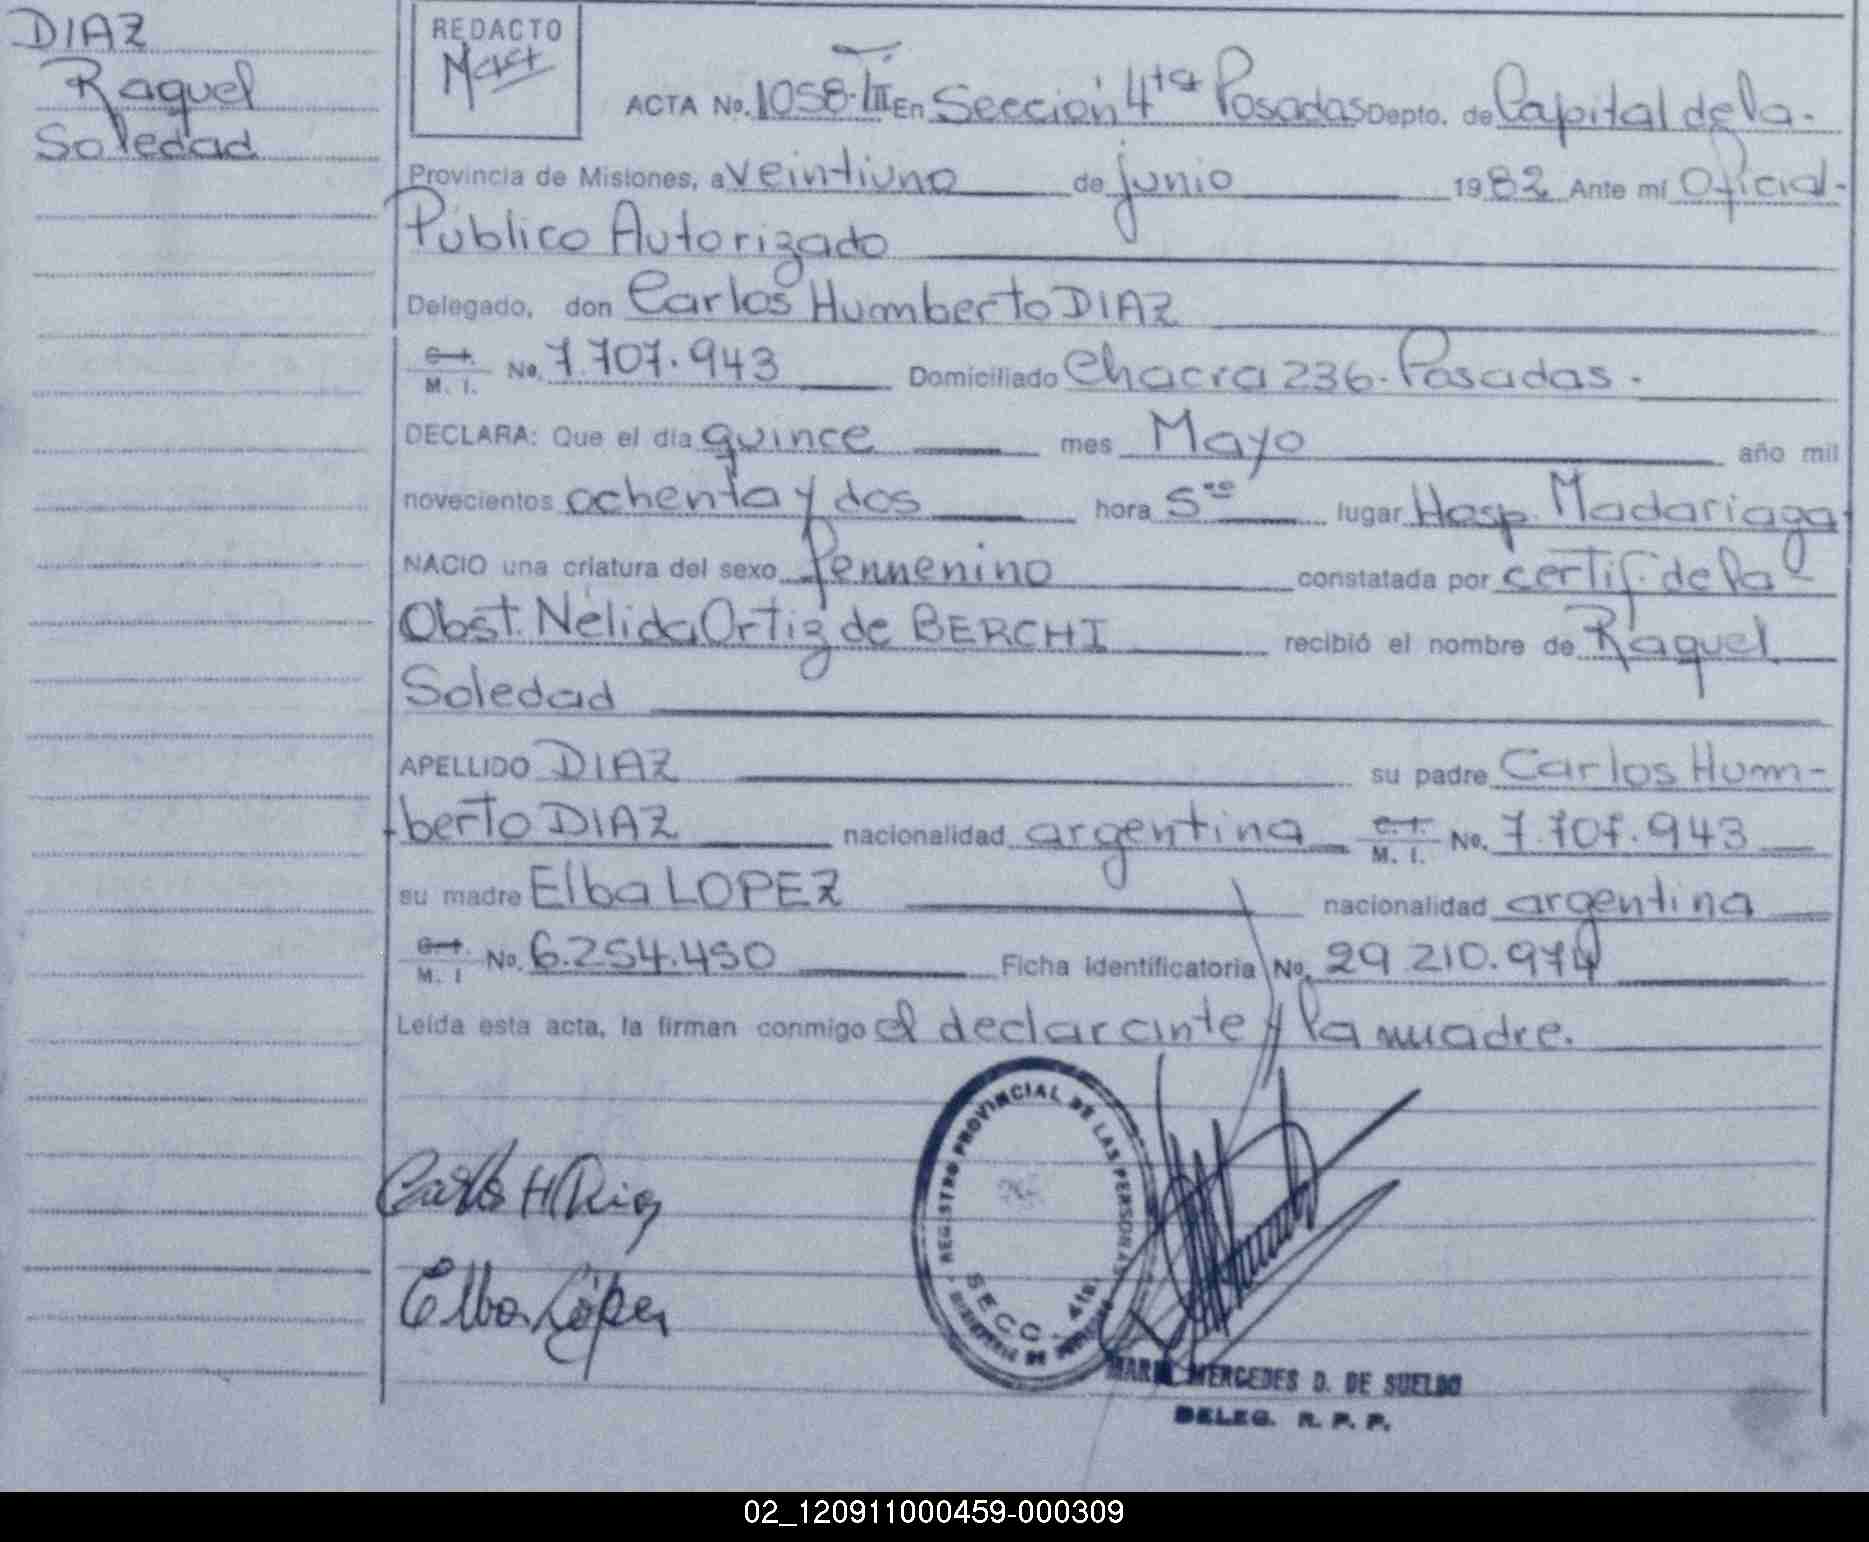 DIAZ
Raquel
Soledad
REDACTO
ACTA No. 1058-III En Sección 4ta Posadas Depto. de Capital de la.
Provincia de Misiones, a veintiuno de junio 1982 Ante mí Oficial-
Público Autorizado
Delegado, don Carlos Humberto DIAZ
C.I. M. I. No. 7.707.943 Domiciliado Chacra 236. Posadas.
DECLARA: Que el día quince mes Mayo año mil
novecientos ochenta y dos hora 5 lugar Hosp. Madariaga
NACIO una criatura del sexo femenino constatada por certif. de la
Obst. Nélida Ortiz de BERCHI recibió el nombre de Raquel
Soledad
APELLIDO DIAZ su padre Carlos Hum-
berto DIAZ nacionalidad argentina C.I. M. I. No. 7.707.943
su madre Elba LOPEZ nacionalidad argentina
C.I. M. I No. 6.254.450 Ficha identificatoria No. 29.210.974
Leída esta acta, la firman conmigo el declarante y la madre.
REGISTRO PROVINCIAL DE LAS PERSONAS
SECC. 4ta.
Carlos H Diaz
Elba López
MARIA MERCEDES D. DE SUELDO
DELEG. R. P. P.
02_120911000459-000309